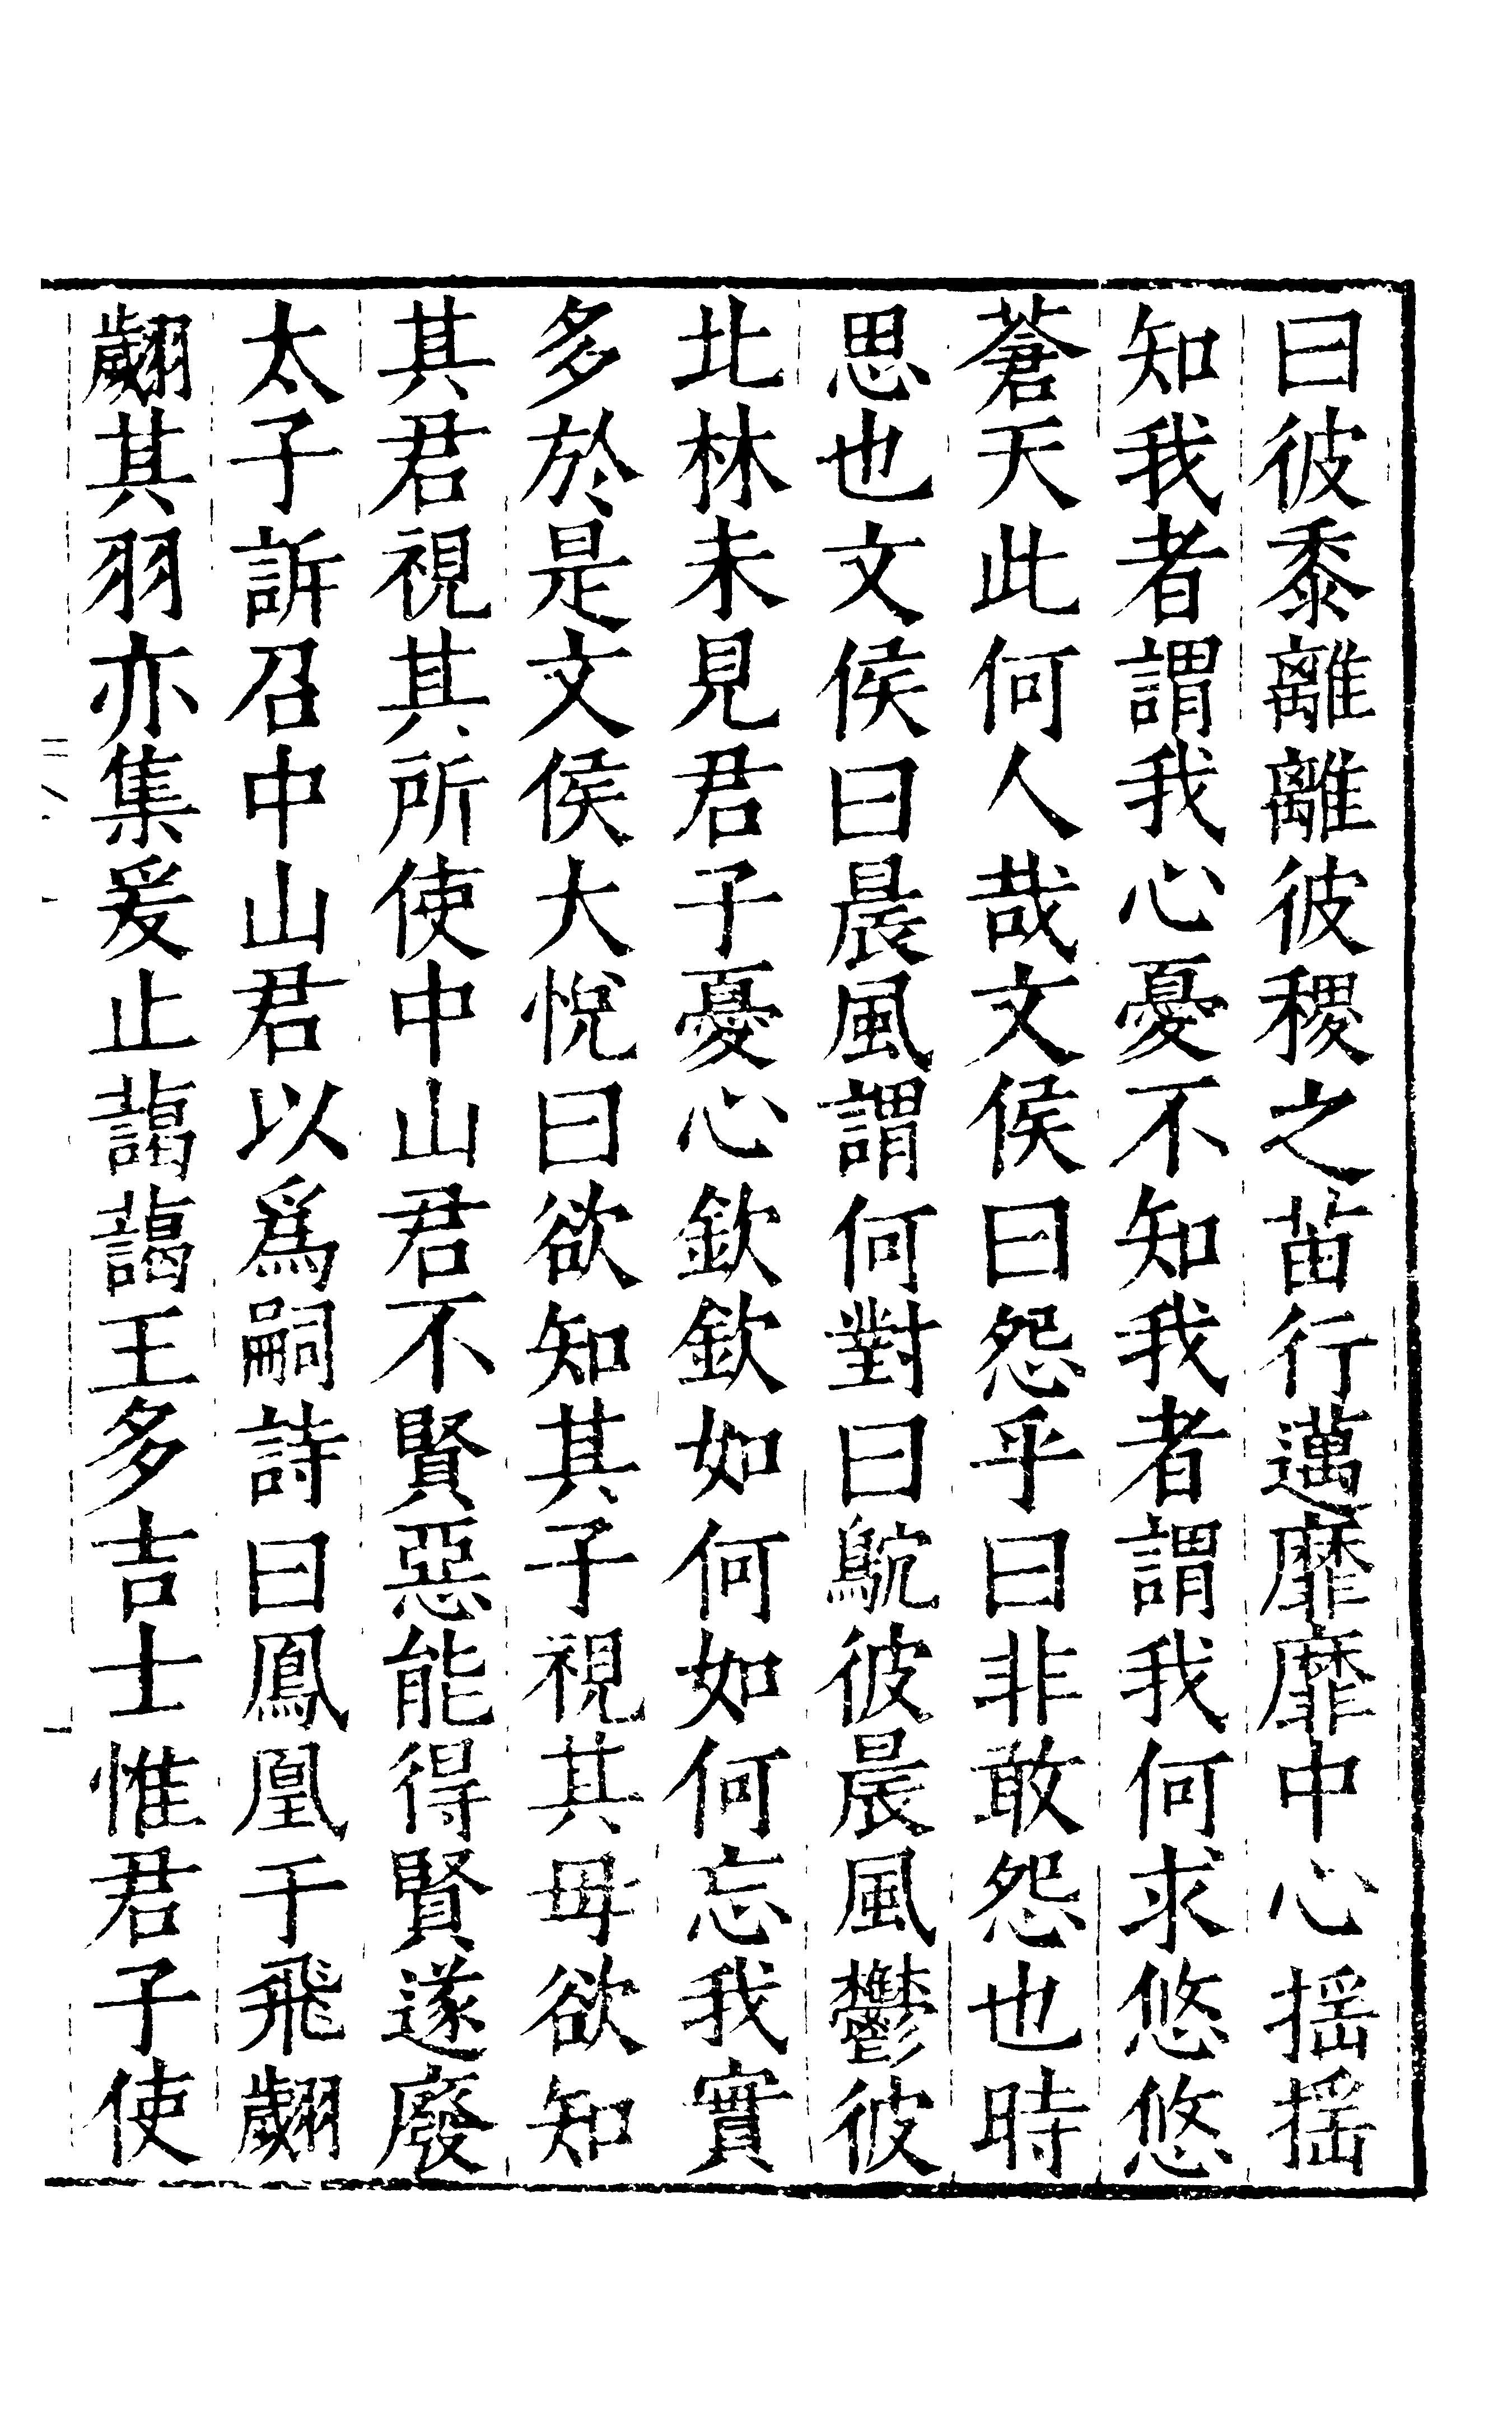 曰彼黍離離彼稷之苗行邁靡靡中心摇摇
知我者謂我心憂不知我者謂我何求悠悠
蒼天此何人哉文侯曰怨乎曰非敢怨也時
思也文侯曰晨風謂何對曰鴥彼晨風鬱彼
北林未見君子憂心欽欽如何如何忘我實
多於是文侯大悅曰欲知其子視其母欲知
其君視其所使中山君不賢惡能得賢遂廢
太子訴召中山君以爲嗣詩曰鳳凰于飛翽
翽其羽亦集爰止藹藹王多吉士惟君子使